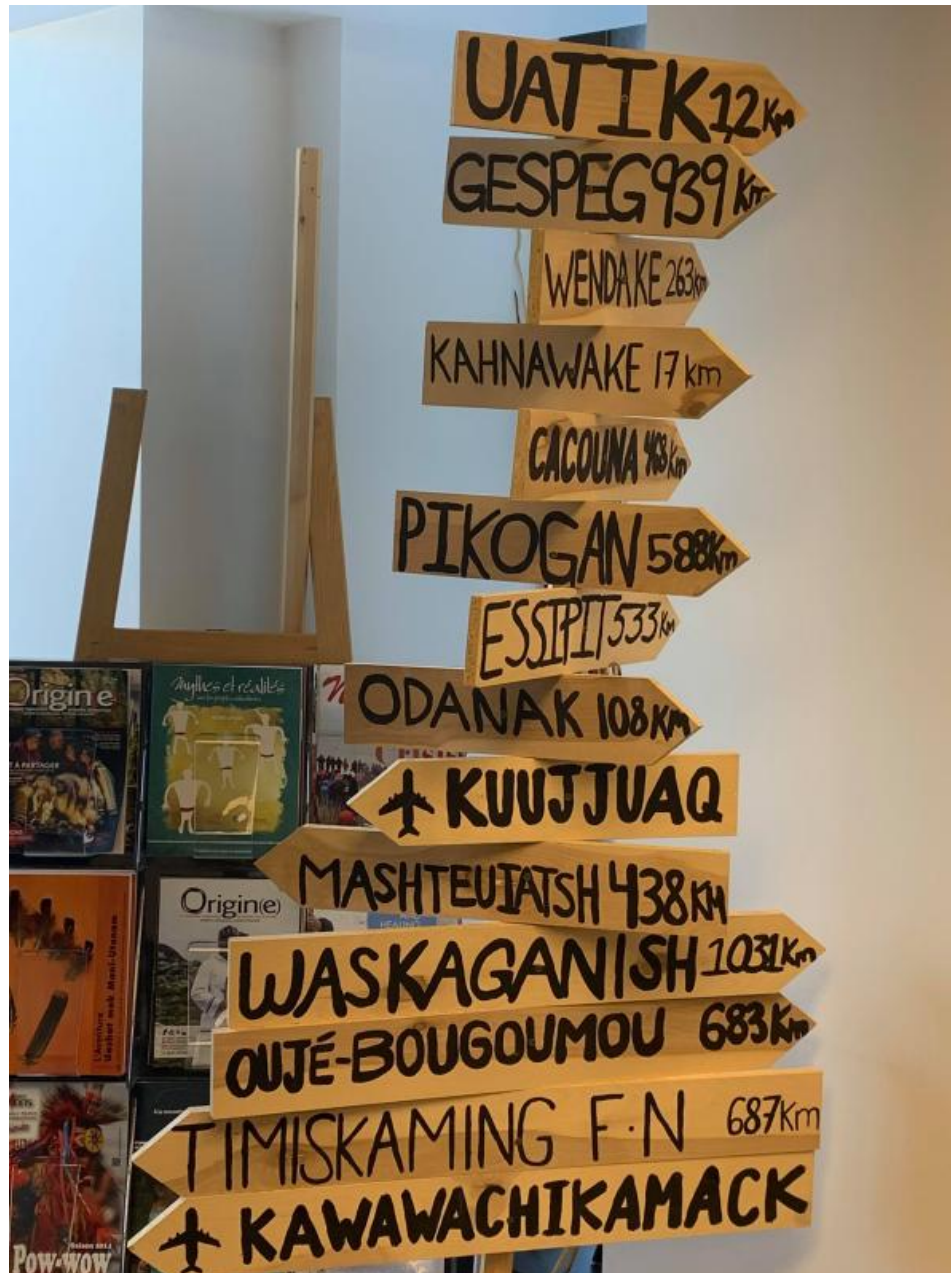 UATIK 1,2 Km
GESPEG 939 Km
WENDAKE 263 Km
KAHNAWAKE 17 km
CACOUNA 468 Km
PIKOGAN 588 Km
ESSIPIT 533 Km
ODANAK 108 KM
KUUJJUAQ
MASHTEUIATSH 438 KM
WASKAGANISH 1031 Km
OUJÉ-BOUGOUMOU 683 Km
TIMISKAMING F·N 687 Km
KAWAWACHIKAMACK
Origin e
À PARTAGER
Mythes et réalités
Origin(e)
L'Aventure
Pow-wow